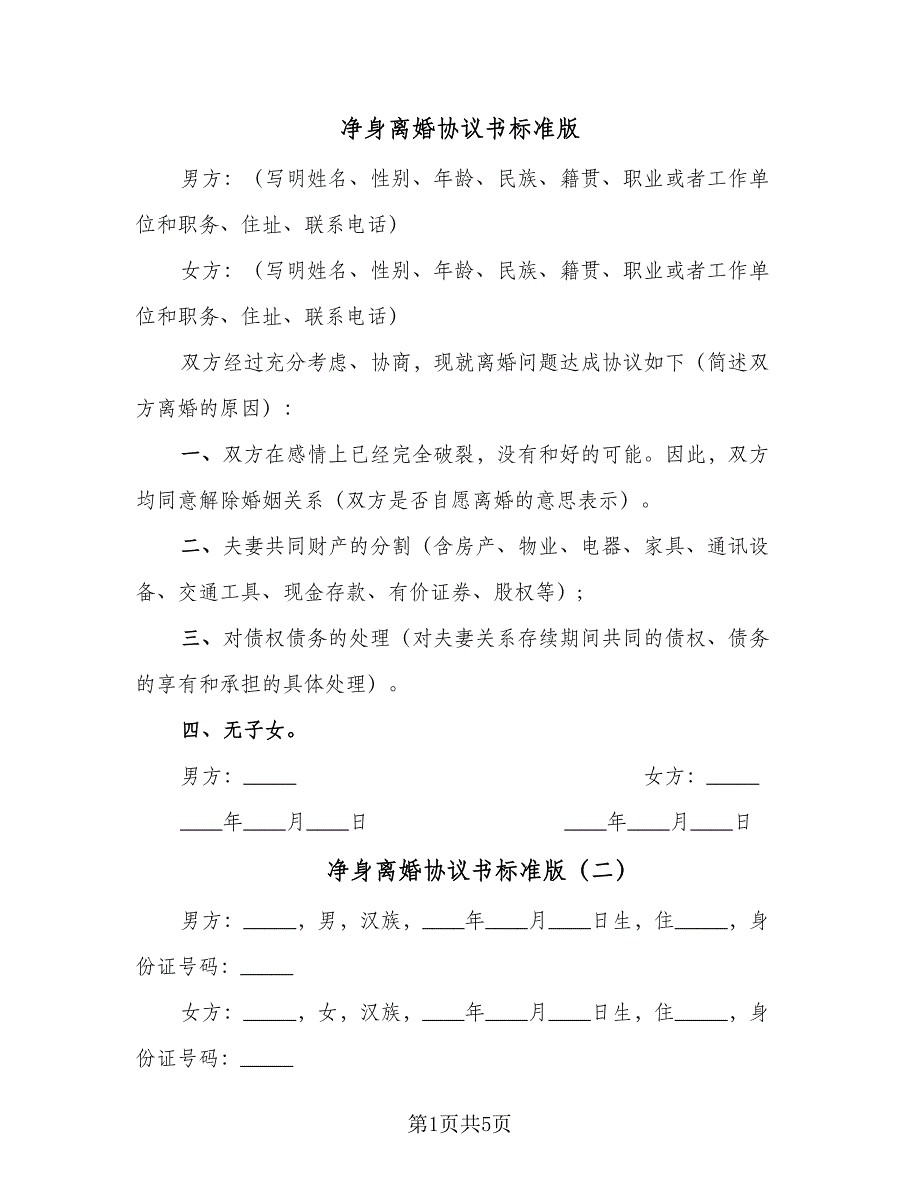 净身离婚协议书标准版
男方：（写明姓名、性别、年龄、民族、籍贯、职业或者工作单
位和职务、住址、联系电话）
女方：（写明姓名、性别、年龄、民族、籍贯、职业或者工作单
位和职务、住址、联系电话）
双方经过充分考虑、协商，现就离婚问题达成协议如下（简述双
方离婚的原因）：
一、双方在感情上已经完全破裂，没有和好的可能。因此，双方
均同意解除婚姻关系（双方是否自愿离婚的意思表示）。
二、夫妻共同财产的分割（含房产、物业、电器、家具、通讯设
备、交通工具、现金存款、有价证券、股权等）；
三、对债权债务的处理（对夫妻关系存续期间共同的债权、债务
的享有和承担的具体处理）。
四、无子女。
男方：_____ 女方：_____
____年____月____日 ____年____月____日
净身离婚协议书标准版（二）
男方：_____，男，汉族，____年____月____日生，住_____，身
份证号码：_____
女方：_____，女，汉族，____年____月____日生，住_____，身
份证号码：_____
第1页共5页